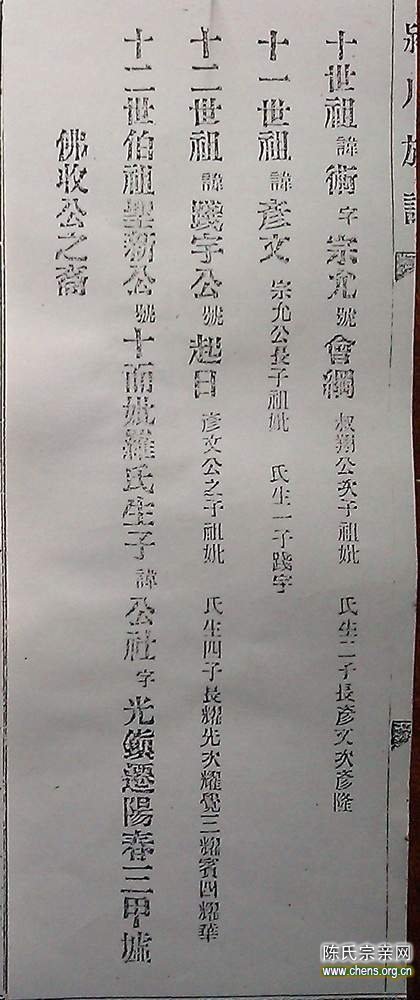 十世祖諱衛字宗允號會綱叔翔公次子祖妣 氏生二子長彥文次彥隆
十一世祖諱彥文宗允公長子祖妣 氏生一子踐宇
十二世祖諱踐宇公號起日彥文公之子祖妣 氏生四子長耀先次耀覺三耀賓四耀華
十二世伯祖聖新公號十面妣羅氏生子諱公社字光鎮遷陽春三甲墟
佛收公之裔
陈氏宗亲网
www.chens.org.cn